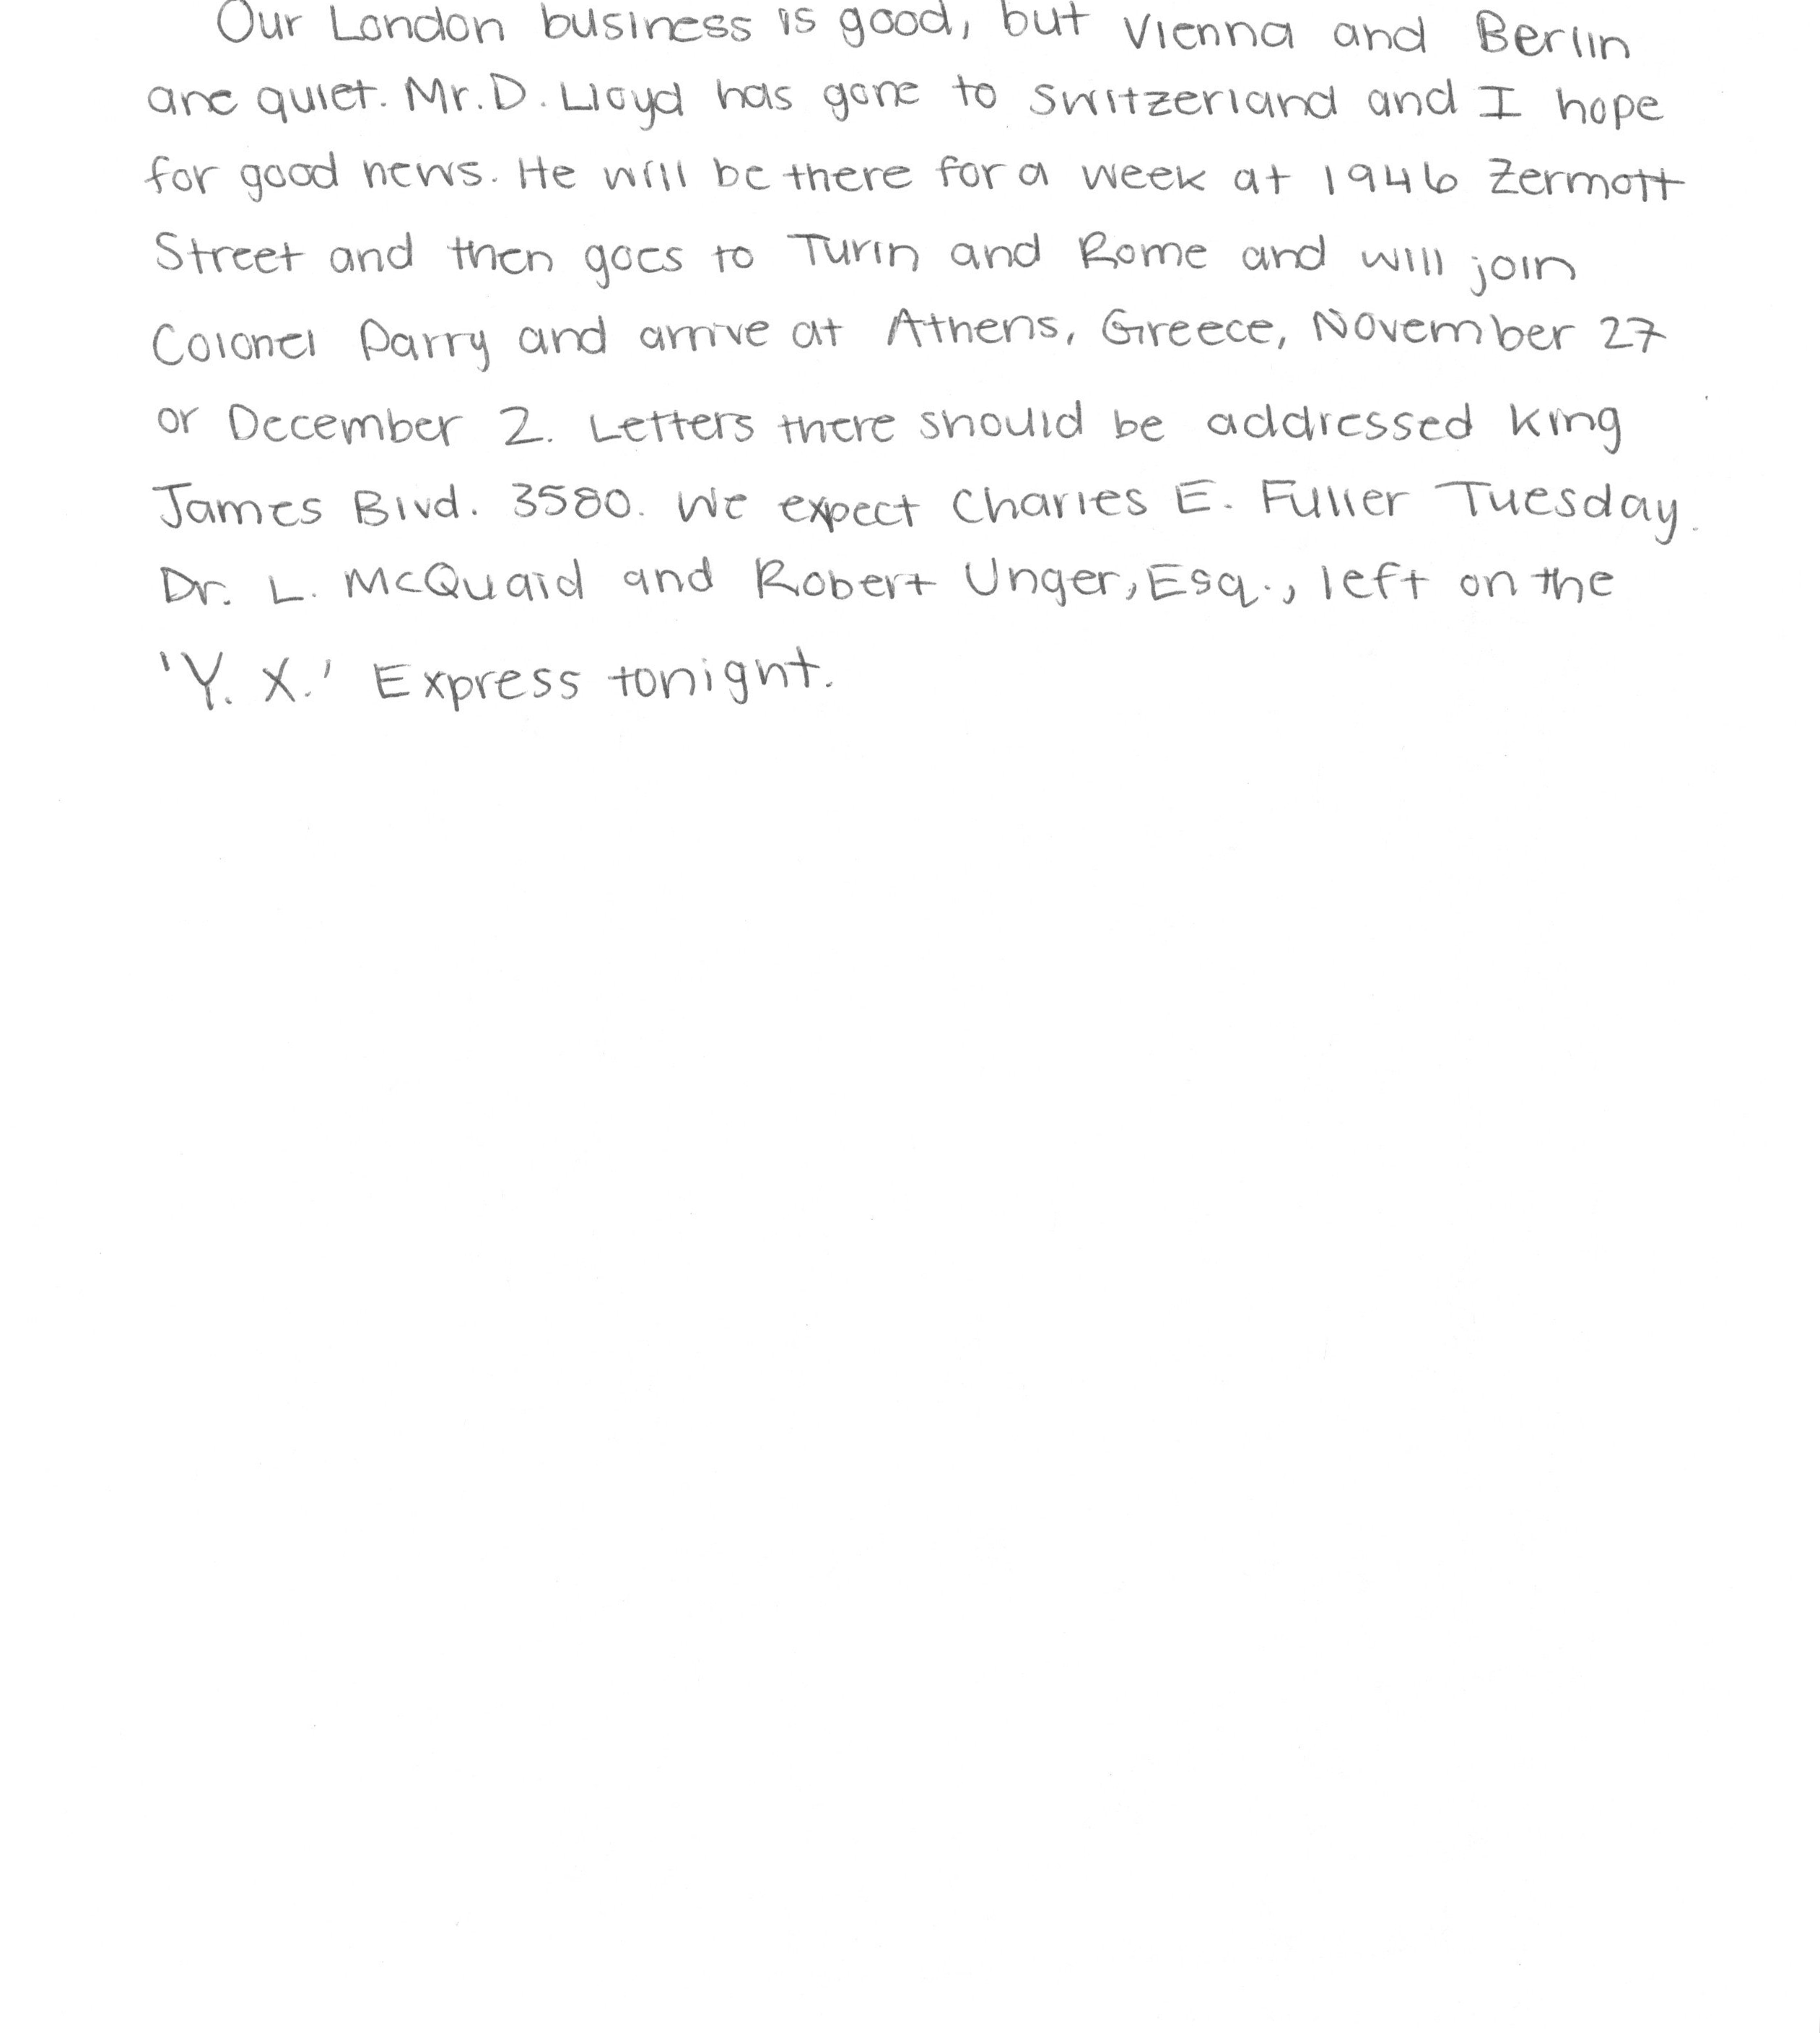 Our London business is good, but Vienna and Berlin
are quiet. Mr. D. Lloyd has gone to Switzerland and I hope
for good news. He will be there for a week at 1946 Zermott
Street and then goes to Turin and Rome and will join
Colonel Parry and arrive at Athens, Greece, November 27
or December 2. Letters there should be addressed King
James Blvd. 3580. We expect Charles E. Fuller Tuesday.
Dr. L. McQuaid and Robert Unger, Esq., left on the
'Y. X.' Express tonight.